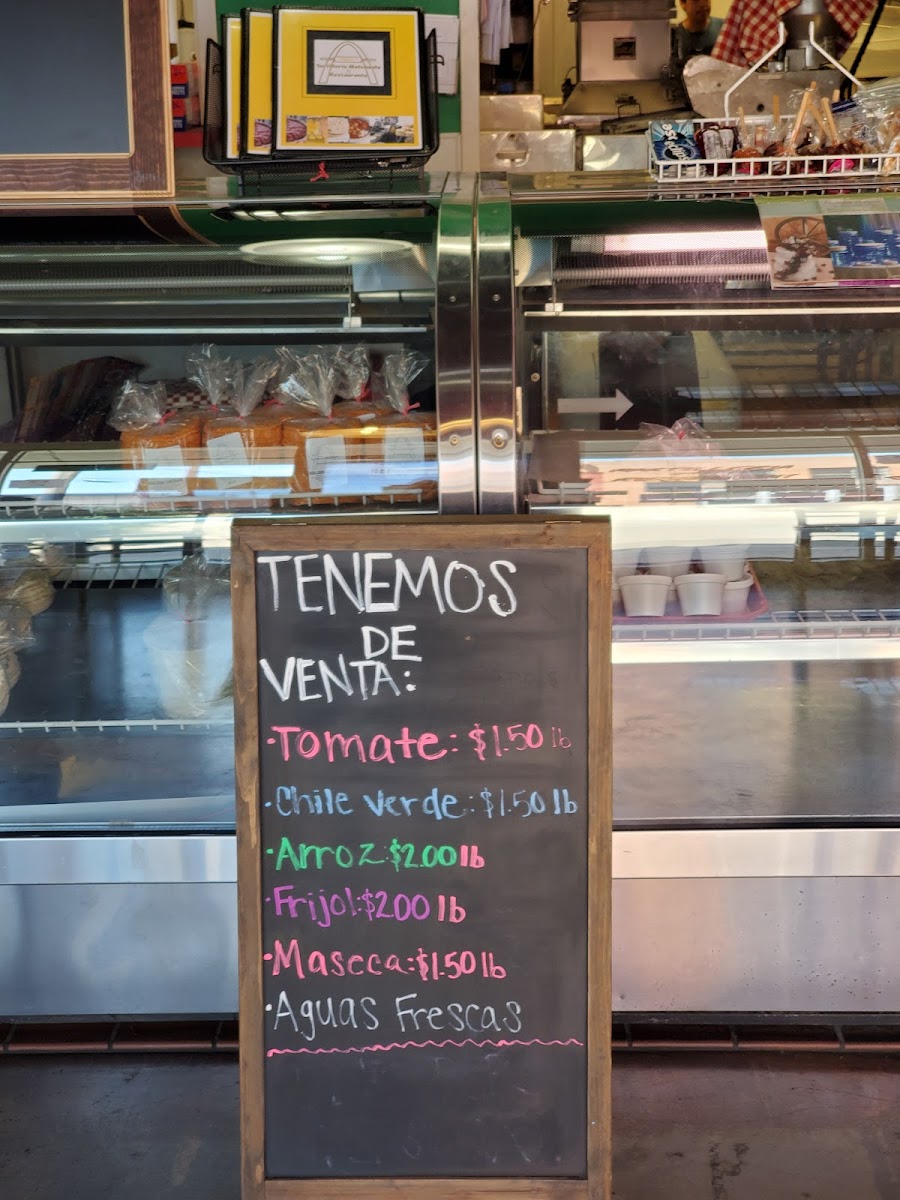 TENEMOS
DE
VENTA:
·Tomate: $1.50 lb
·Chile verde: $1.50 lb
·Arroz: $2.00 lb
·Frijol: $2.00 lb
·Maseca: $1.50 lb
·Aguas Frescas